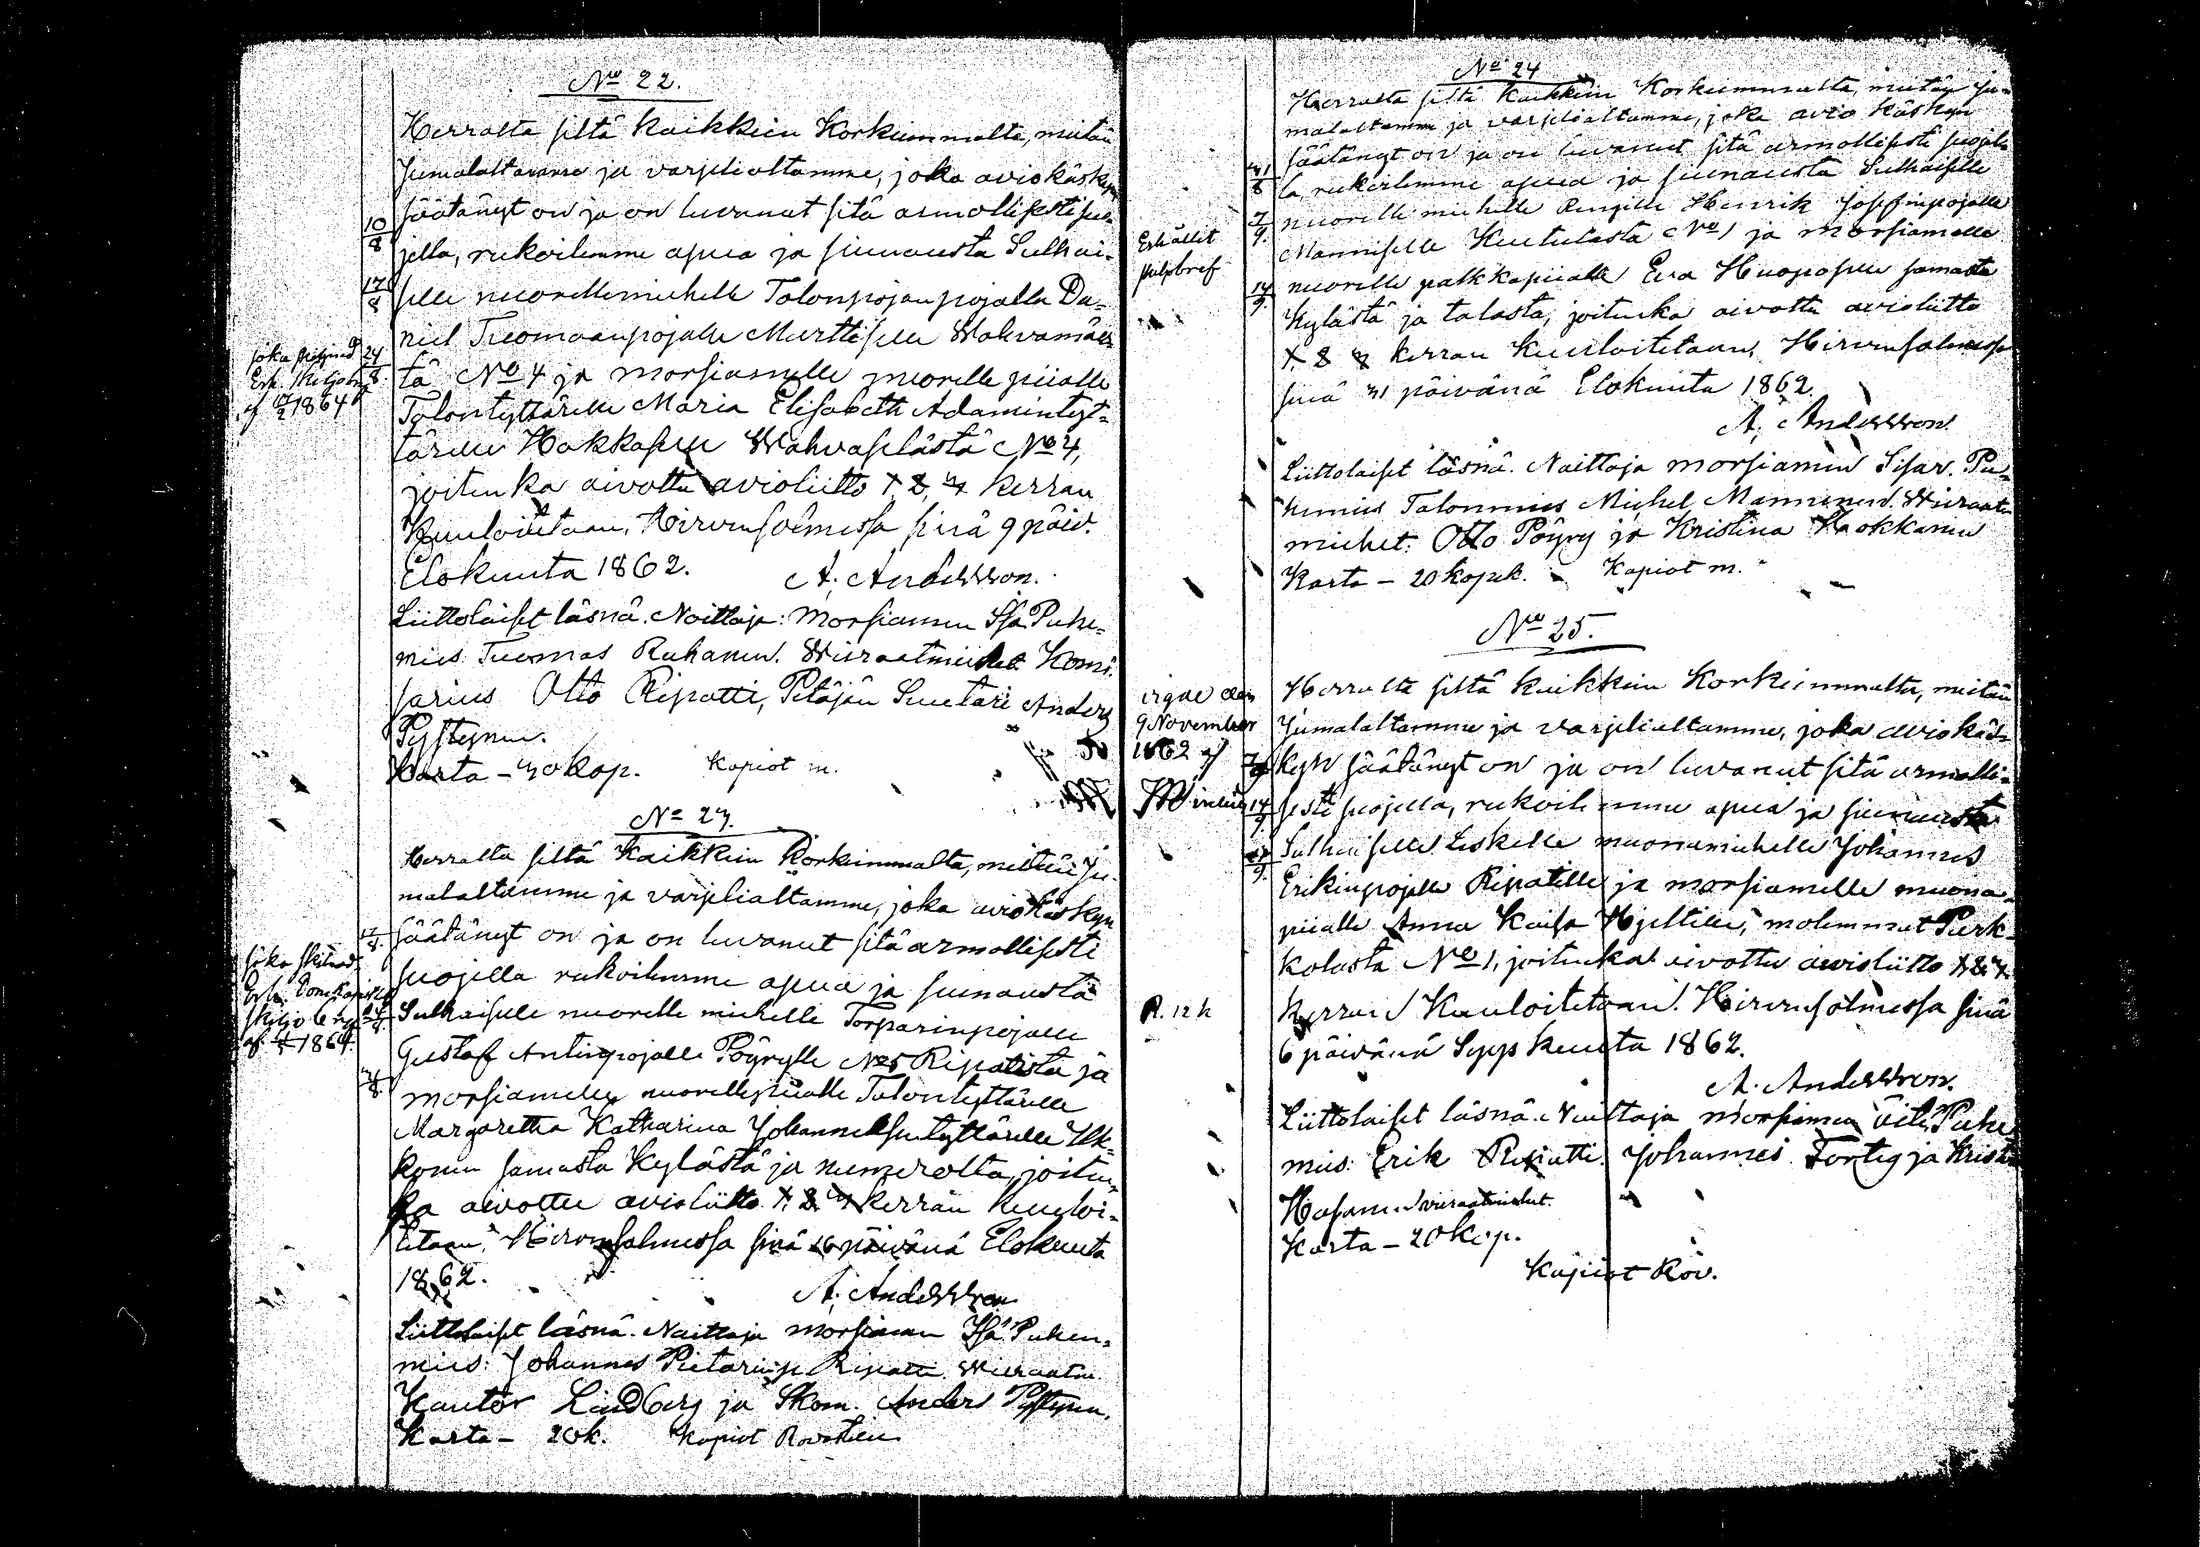 No 22.
Herralta siltä kaikkein Korkeimmalta, meitän
Jumalaltamme ja varjelialtamme, joka aviokäskyn
säätänyt on ja on luvanut sitä armollisesti suo-
jella, rukoilemme apua ja siunausta Sulhai-
selle nuorellemiehelle Talonpojanpojalle Da-
niel Tuomaanpojalle Murttiselle Wahvamäes-
tä No 4 ja morsiamelle nuorelle piialle
Talontyttärelle Maria Elisabeth Adamintyt-
tärelle Hokkaselle Wahvaselästä No 4,
joitenka aivottu avioliitto 1. 2. 3 kerran
Kuuloitetaan. Hirvensalmessa sinä 9 päiv.
Elokuuta 1862. A. Andersson.
Liittolaiset läsnä. Naittaja: Morsiamen Isä. Puhe-
mies: Tuomas Ruhanen. Wieraatmiehet Komi-
sarius Otto Ripatti, Petäjän Suutari Anders
Pystynen.
Karta - 30 kop. Kapiot m.
10/8
17/8
24/8
joka skiljnad
Erh. Skiljobref
af 1864
No 23.
Herralta siltä Kaikkein Korkeimmalta, meitän Ju-
malaltamme ja varjelialtamme, joka aviokäskyn
säätänyt on ja on luvanut sitä armollisesti
suojella rukoilemme apua ja siunausta
Sulhaiselle nuorelle miehelle Torparinpojalle
Gustaf Antinpojalle Pöyrylle No 5 Ripatista ja
morsiamelle nuorellepiialle Talontyttärelle
Margaretha Katharina Johanneksentyttärelle Uk-
konen samasta Kylästä ja numerolta, joiten-
ka aivottu avioliitto 1. 2. 3 kerran kuuloi-
tetaan. Hirvensalmessa sinä 16 päivänä Elokuuta
1862.
A. Andersson
Liittolaiset läsnä. Naittaja morsiamen Isä. Puhen-
mies: Johannes Pietarinp. Ripatti. Wieraatm.
Kantor Lindberg ja Skom. Anders Pystynen.
Karta - 20 k. Kapiot Rovastille
17/8
24/8
31/8
af 1864.
No 24
Herralta siltä kaikkein Korkeimmalta, meitän Ju-
malaltamme ja varjelialtamme, joka avio käskyn
säätänyt on ja on luvanut sitä armollisesti suojel-
la, rukoilemme apua ja siunausta Sulhaiselle
nuorelle miehelle Rengille Henrik Josefinpojalle
Manniselle Kuitulasta No 1 ja morsiamelle
nuorelle palkkapiialle Eva Huoposelle samasta
Kylästä ja talosta, joitenka aivottu avioliitto
1. 2. 3 kerran Kuuloitetaan. Hirvensalmessa
sinä 31 päivänä Elokuuta 1862.
A. Andersson.
Liittolaiset läsnä. Naittaja morsiamen Sisar. Pu-
hemies Talonmies Michel Manninen. Wieraat-
miehet: Otto Pöyry ja Kristina Hokkanen
Karta - 20 kopek. Kapiot m.
31/8
7/9
14/9
Erhållit
pulsbref
No 25.
Herralta siltä kaikkein Korkeimmalta, meitän
Jumalaltamme ja varjelialtamme, joka aviokäs-
kyn säätänyt on ja on luvanut sitä armolli-
sesti suojella, rukoilemme apua ja siunausta
Sulhaiselle Leskelle muonamiehelle Johannes
Erikinpojalle Ripatille ja morsiamelle muona-
piialle Anna Kaisa Hjeltille, molemmat Purk-
kolasta No 1, joitenka aivottu avioliitto 1. 2. 3
kerran Kuuloitetaan. Hirvensalmessa sinä
6 päivänä Syyskuuta 1862.
A. Andersson.
Liittolaiset läsnä. Naittaja morsiamen äiti. Puhe-
mies: Erik Ripatti. Johannes Fortig ja Krist.
Hasanen vieraatmiehet.
Karta - 20 kop.
Kapiot Rov.
7/9
14/9
21/9
vigde den
9 November
1862 af
R. 12 k